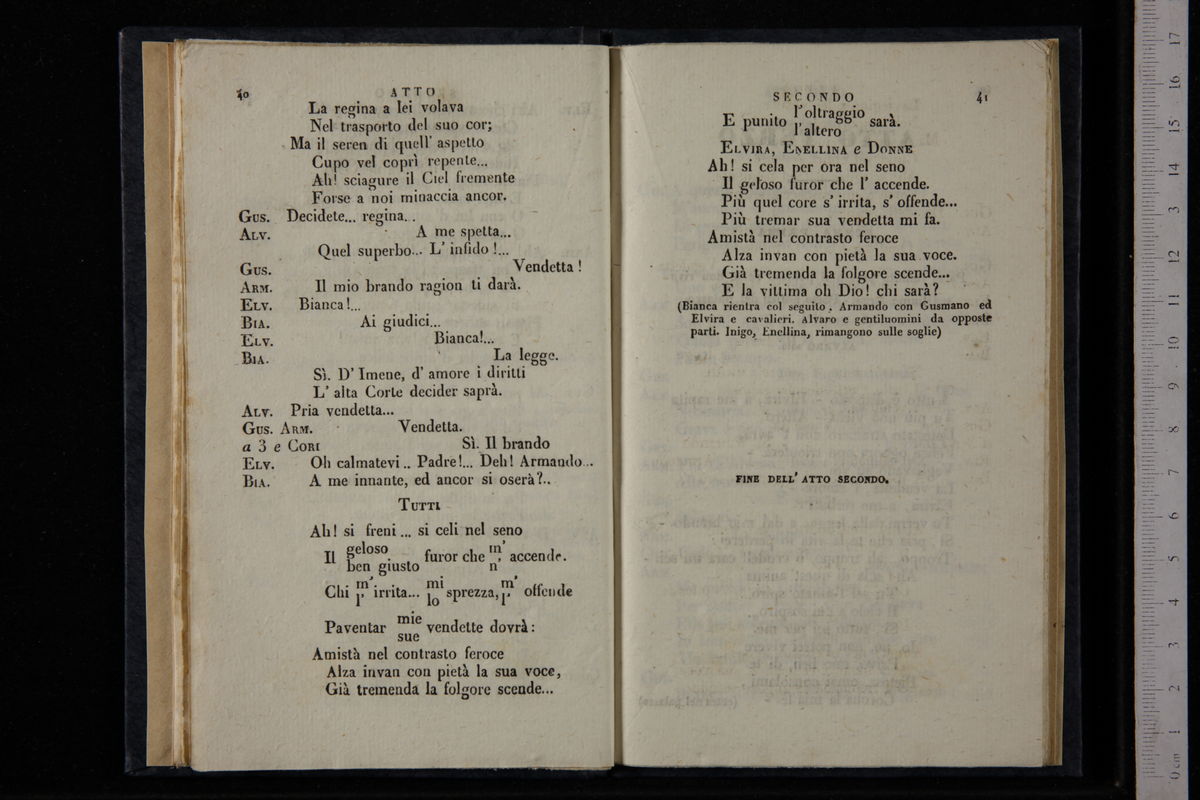 40
ATTO
La regina a lei volava
Nel trasporto del suo cor;
Ma il seren di quell' aspetto
Cupo vel coprì repente...
Ah! sciagure il Ciel fremente
Forse a noi minaccia ancor.
GUS. Decidete... regina..
ALV. A me spetta...
Quel superbo... L' infido!...
GUS. Vendetta!
ARM. Il mio brando ragion ti darà.
ELV. Bianca!...
BIA. Ai giudici...
ELV. Bianca!...
BIA. La legge.
Sì. D' Imene, d' amore i diritti
L' alta Corte decider saprà.
ALV. Pria vendetta...
GUS. ARM. Vendetta.
a 3 e CORI Sì. Il brando
ELV. Oh calmatevi.. Padre!... Deh! Armando...
BIA. A me innante, ed ancor si oserà?..
TUTTI
Ah! si freni... si celi nel seno
Il geloso furor che m' accende.
ben giusto n'
Chi m' irrita... mi sprezza, m' offende
l' lo l'
Paventar mie vendette dovrà:
sue
Amistà nel contrasto feroce
Alza invan con pietà la sua voce,
Già tremenda la folgore scende...
SECONDO
41
E punito l'oltraggio sarà.
l'altero
ELVIRA, ENELLINA e DONNE
Ah! si cela per ora nel seno
Il geloso furor che l' accende.
Più quel core s' irrita, s' offende...
Più tremar sua vendetta mi fa.
Amistà nel contrasto feroce
Alza invan con pietà la sua voce.
Già tremenda la folgore scende...
E la vittima oh Dio! chi sarà?
(Bianca rientra col seguito. Armando con Gusmano ed
Elvira e cavalieri. Alvaro e gentiluomini da opposte
parti. Inigo, Enellina, rimangono sulle soglie)
FINE DELL' ATTO SECONDO.
0 cm 1 2 3 4 5 6 7 8 9 10 11 12 13 14 15 16 17